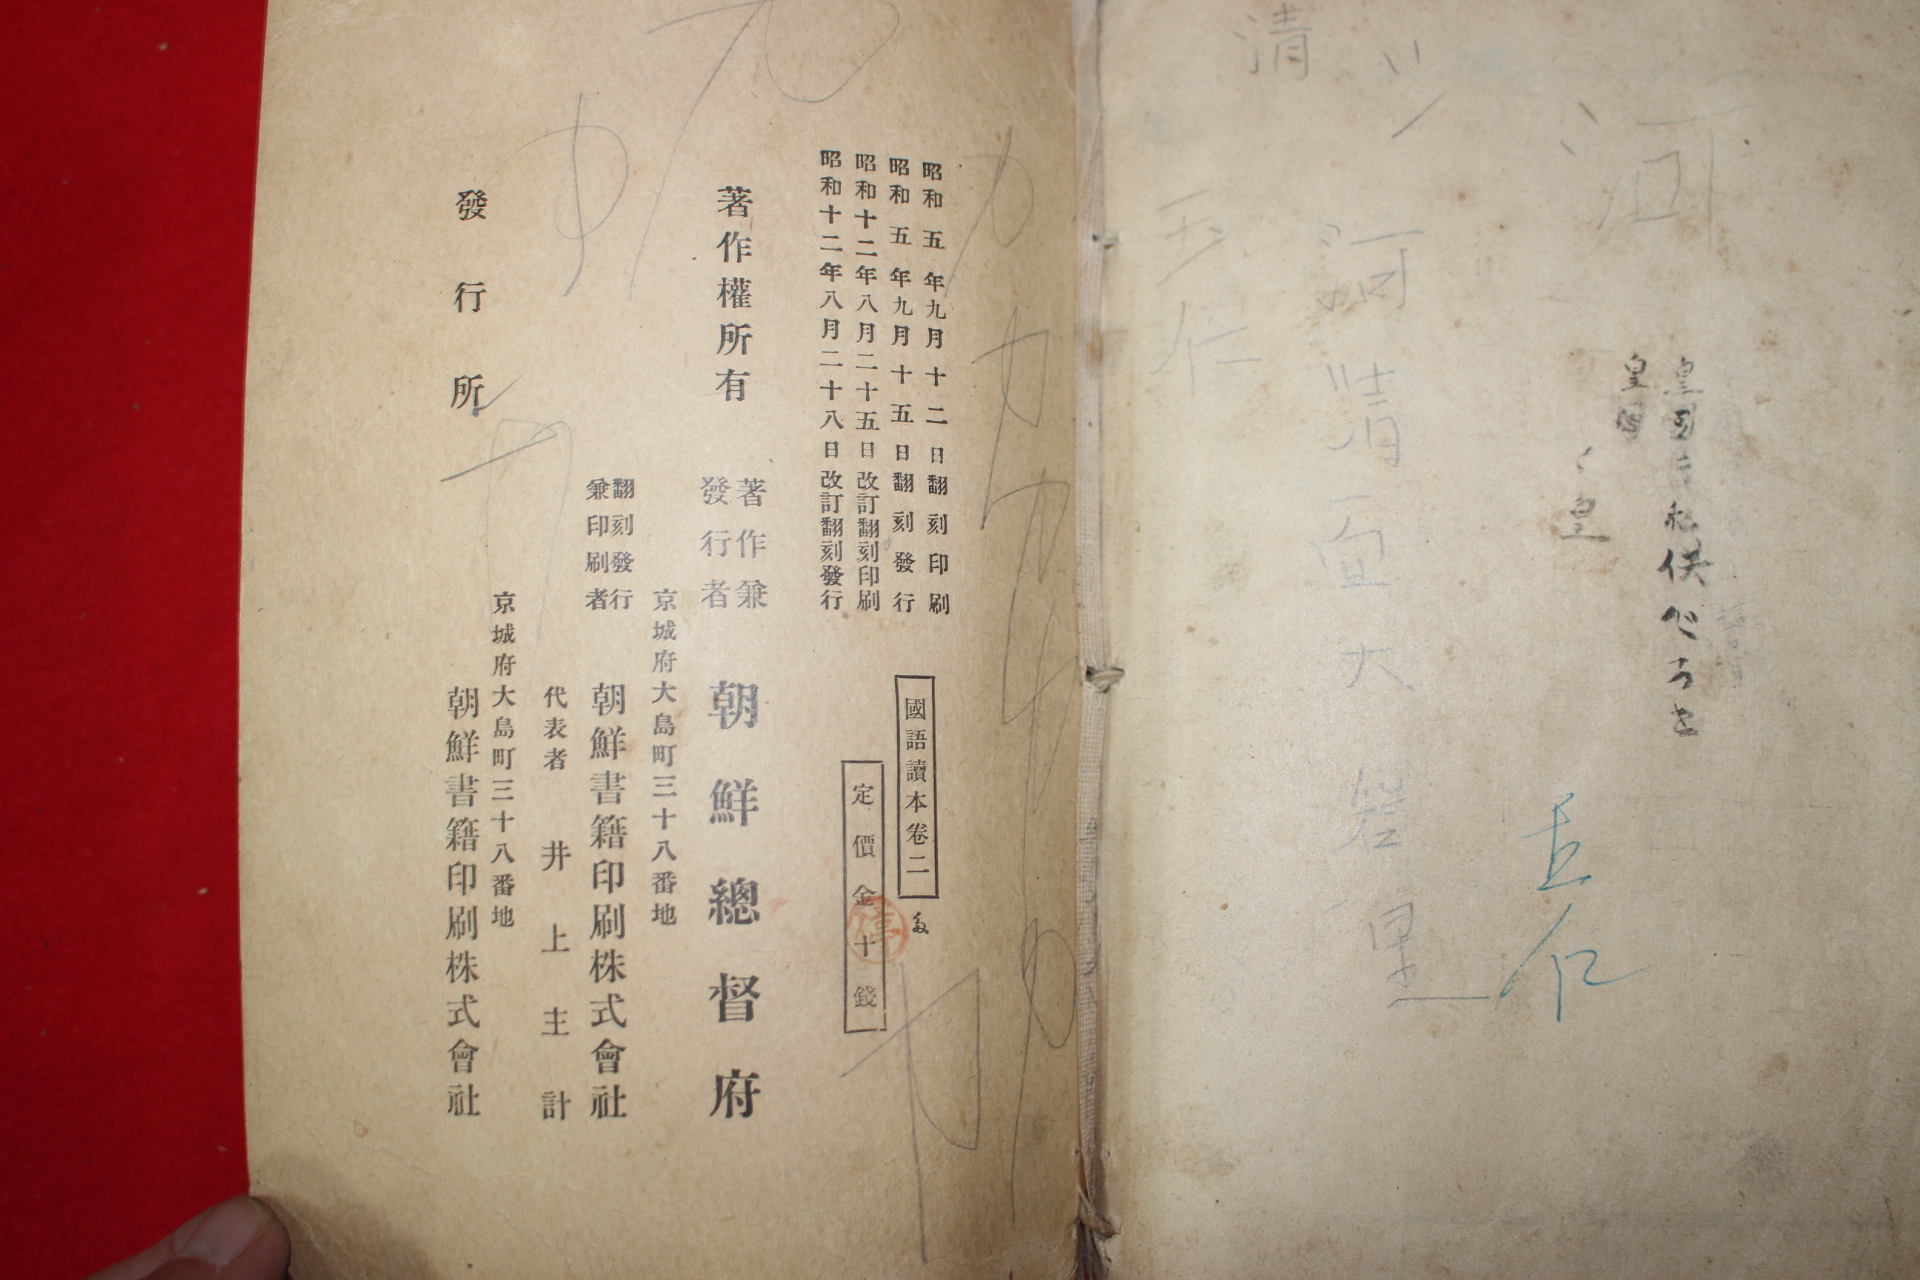 清
河
河清面大
玉仁
皇国
皇国
皇
供
玉仁
昭和五年九月十二日翻刻印刷
昭和五年九月十五日翻刻發行
昭和十二年八月二十五日改訂翻刻印刷
昭和十二年八月二十八日改訂翻刻發行
國語讀本卷二
定價金十錢
著作權所有
著作兼
發行者
朝鮮總督府
京城府大島町三十八番地
翻刻發行
兼印刷者
朝鮮書籍印刷株式會社
代表者 井上主計
京城府大島町三十八番地
發行所
朝鮮書籍印刷株式會社